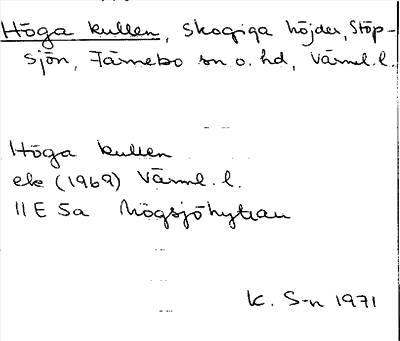 Höga kullen, skogiga höjder, Stöp-
sjön, Färnebo sn o. hd, Värml. l.
Höga kullen
ek (1969) Värml. l.
11 E 5a Högsjöhyttan
K. S-n 1971